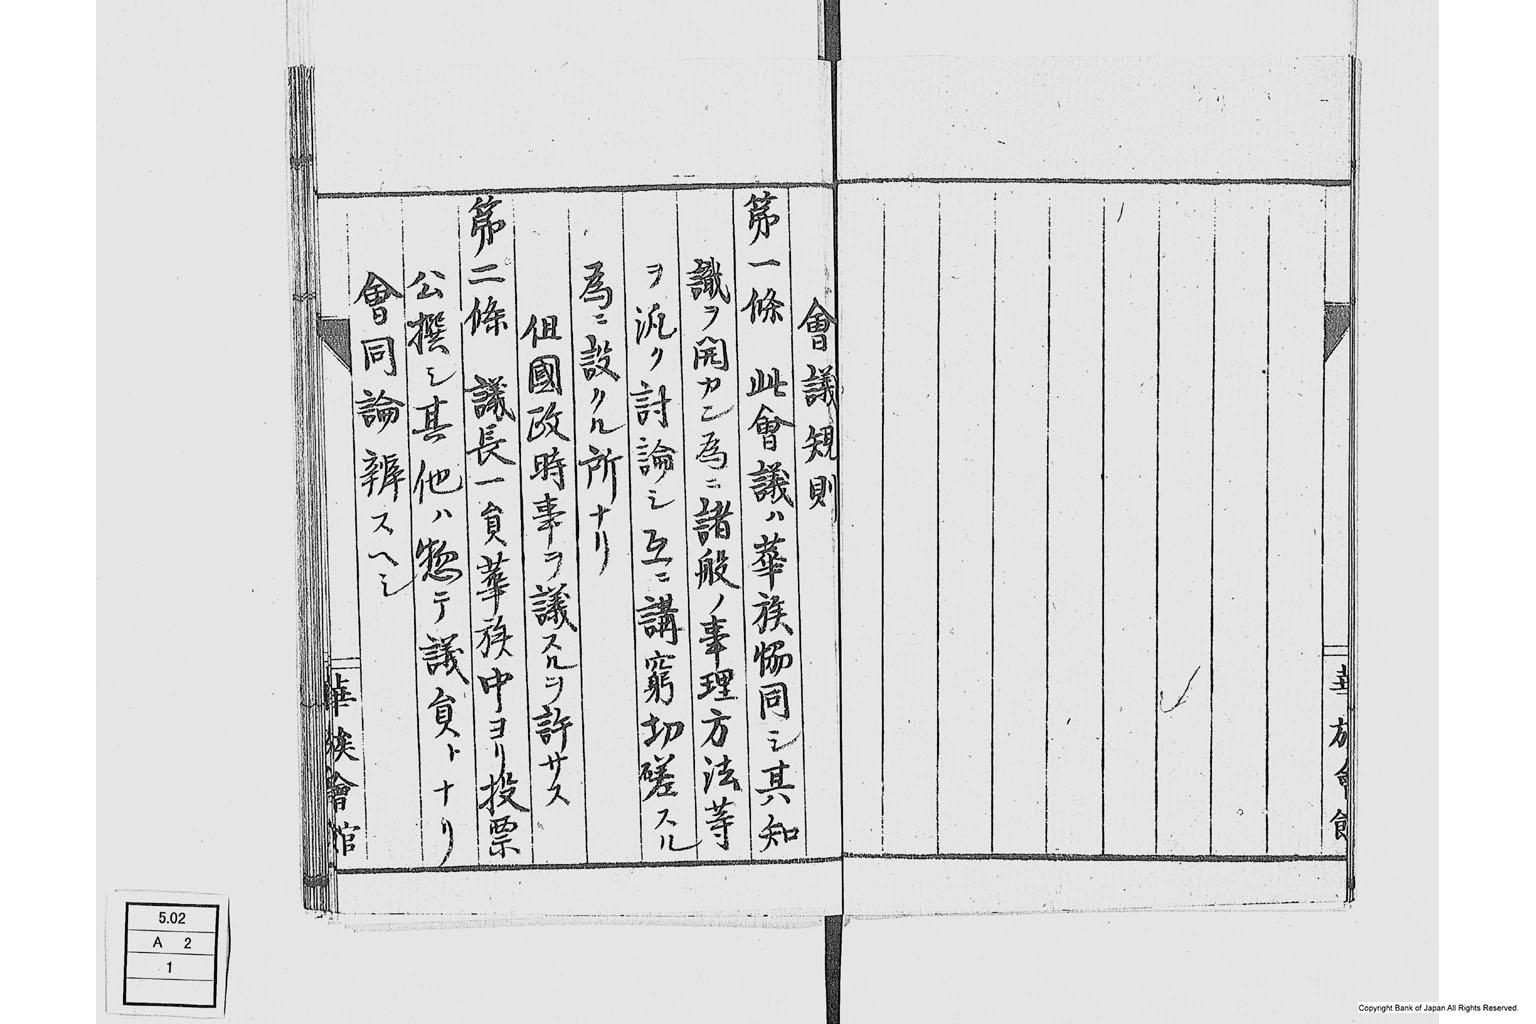 華族會館
會議規則
第一條 此會議ハ華族恊同シ其知
識ヲ開カン為ニ諸般ノ事理方法等
ヲ汎ク討論シ互ニ講窮切磋スル
為ニ設クル所ナリ
但國政時事ヲ議スルヲ許サス
第二條 議長一員華族中ヨリ投票
公撰シ其他ハ惣テ議員トナリ
會同論辨スヘシ
華族會館
5.02
A 2
1
Copyright Bank of Japan All Rights Reserved.